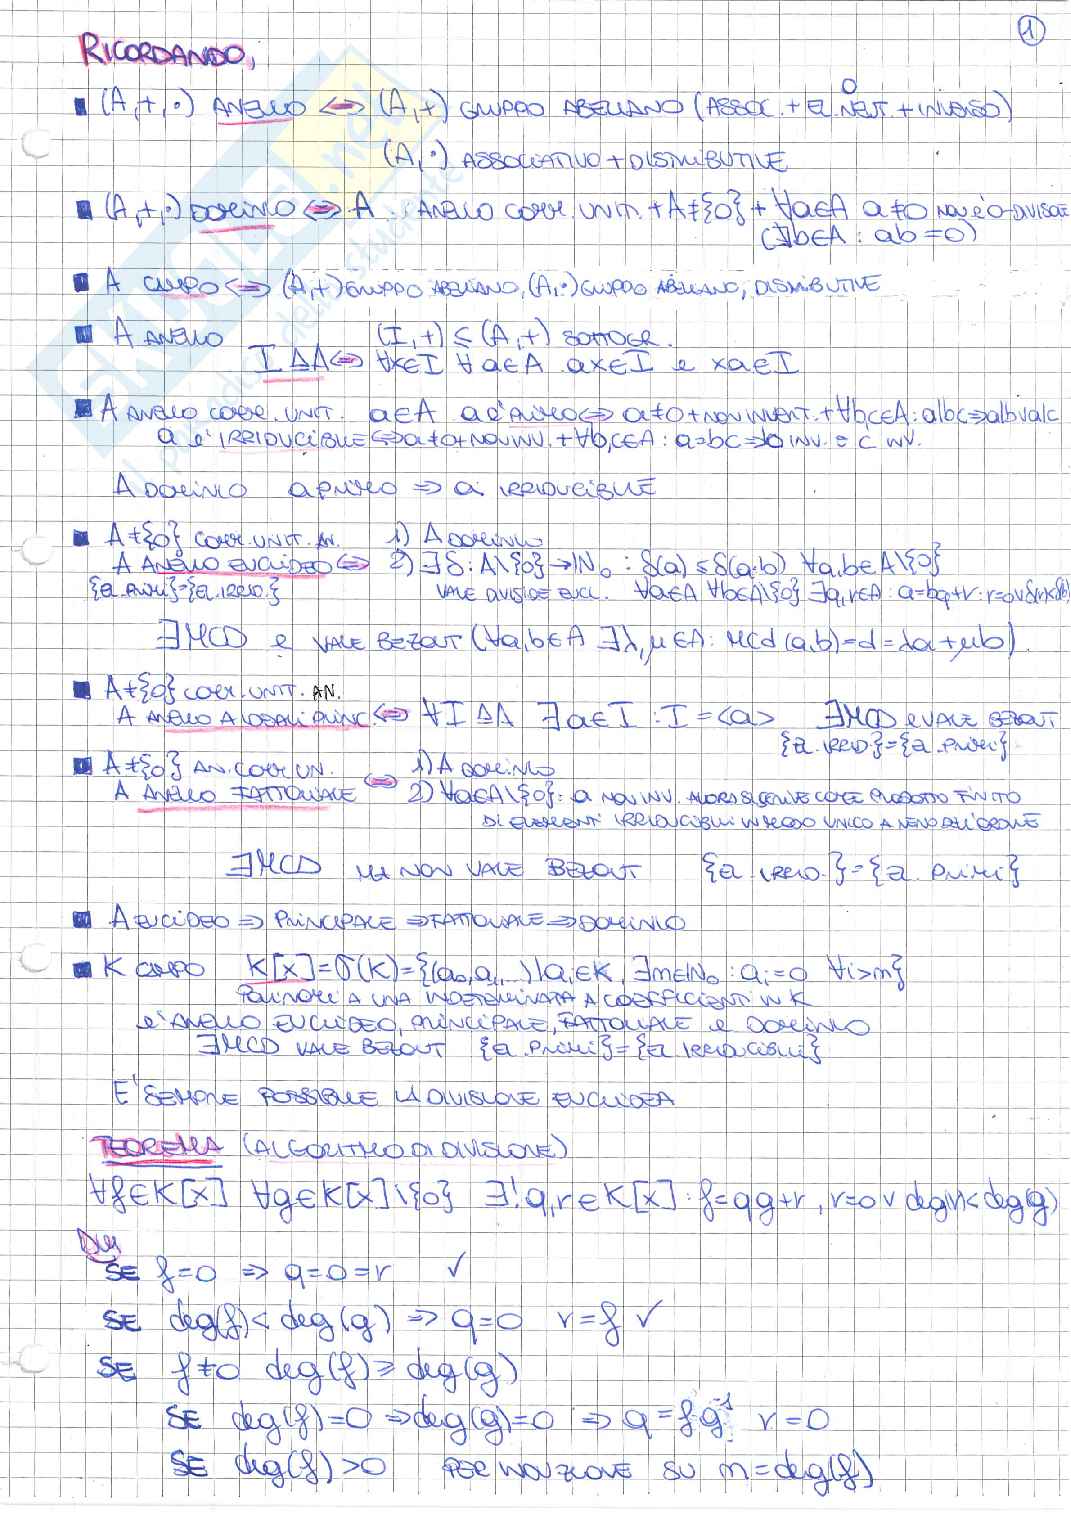 1
RICORDANDO,
■ (A,+,·) ANELLO ⟺ (A,+) GRUPPO ABELIANO (ASSOC. + EL. NEUT. 0 + INVERSO)
(A,·) ASSOCIATIVO + DISTRIBUTIVE
■ (A,+,·) DOMINIO ⟺ A ANELLO COMM. UNIT. + A≠{0} + ∀a∈A a≠0 NON È 0-DIVISORE
(∄b∈A : ab=0)
■ A CAMPO ⟺ (A,+) GRUPPO ABELIANO, (A,·) GRUPPO ABELIANO, DISTRIBUTIVE
■ A ANELLO (I,+) ≤ (A,+) SOTTOGR.
I ⊴ A ⟺ ∀x∈I ∀a∈A ax∈I e xa∈I
■ A ANELLO COMM. UNIT. a∈A a è PRIMO ⟺ a≠0 + NON INVERT. + ∀b,c∈A : a|bc ⟹ a|b ∨ a|c
a è IRRIDUCIBILE ⟺ a≠0 + NON INV. + ∀b,c∈A : a=bc ⟹ b INV. o c INV.
A DOMINIO a PRIMO ⟹ a IRRIDUCIBILE
■ A≠{0} COMM. UNIT. AN. 1) A DOMINIO
A ANELLO EUCLIDEO ⟺ 2) ∃δ : A\{0} → ℕ₀ : δ(a) ≤ δ(a·b) ∀a,b∈A\{0}
{EL. PRIMI}={EL. IRRID.} VALE DIVISIONE EUCL. ∀a∈A ∀b∈A\{0} ∃q,r∈A : a=bq+r : r=0 ∨ δ(r)<δ(b)
∃MCD e VALE BEZOUT (∀a,b∈A ∃λ,μ∈A : MCD(a,b)=d=λa+μb)
■ A≠{0} COMM. UNIT. AN.
A ANELLO A IDEALI PRINC. ⟺ ∀I ⊴ A ∃a∈I : I=<a> ∃MCD e VALE BEZOUT
{EL. IRRID.}={EL. PRIMI}
■ A≠{0} AN. COMM. UN. 1) A DOMINIO
A ANELLO FATTORIALE ⟺ 2) ∀a∈A\{0} : a NON INV. ALLORA SI SCRIVE COME PRODOTTO FINITO
DI ELEMENTI IRRIDUCIBILI IN MODO UNICO A MENO DELL'ORDINE
∃MCD MA NON VALE BEZOUT {EL. IRRID.}={EL. PRIMI}
■ A EUCLIDEO ⟹ PRINCIPALE ⟹ FATTORIALE ⟹ DOMINIO
■ K CAMPO K[x]=σ(K)={(a₀,a₁,...)|aᵢ∈K, ∃m∈ℕ₀ : aᵢ=0 ∀i>m}
POLINOMI A UNA INDETERMINATA A COEFFICIENTI IN K
È ANELLO EUCLIDEO, PRINCIPALE, FATTORIALE e DOMINIO
∃MCD VALE BEZOUT {EL. PRIMI}={EL. IRRIDUCIBILI}
E' SEMPRE POSSIBILE LA DIVISIONE EUCLIDEA
TEOREMA (ALGORITMO DI DIVISIONE)
∀f∈K[x] ∀g∈K[x]\{0} ∃!q,r∈K[x] : f=qg+r, r=0 ∨ deg(r)<deg(g)
DIM
SE f=0 ⟹ q=0=r ✓
SE deg(f)<deg(g) ⟹ q=0 r=f ✓
SE f≠0 deg(f)≥deg(g)
SE deg(f)=0 ⟹ deg(g)=0 ⟹ q=f·g⁻¹ r=0
SE deg(f)>0 PER INDUZIONE SU m=deg(f)